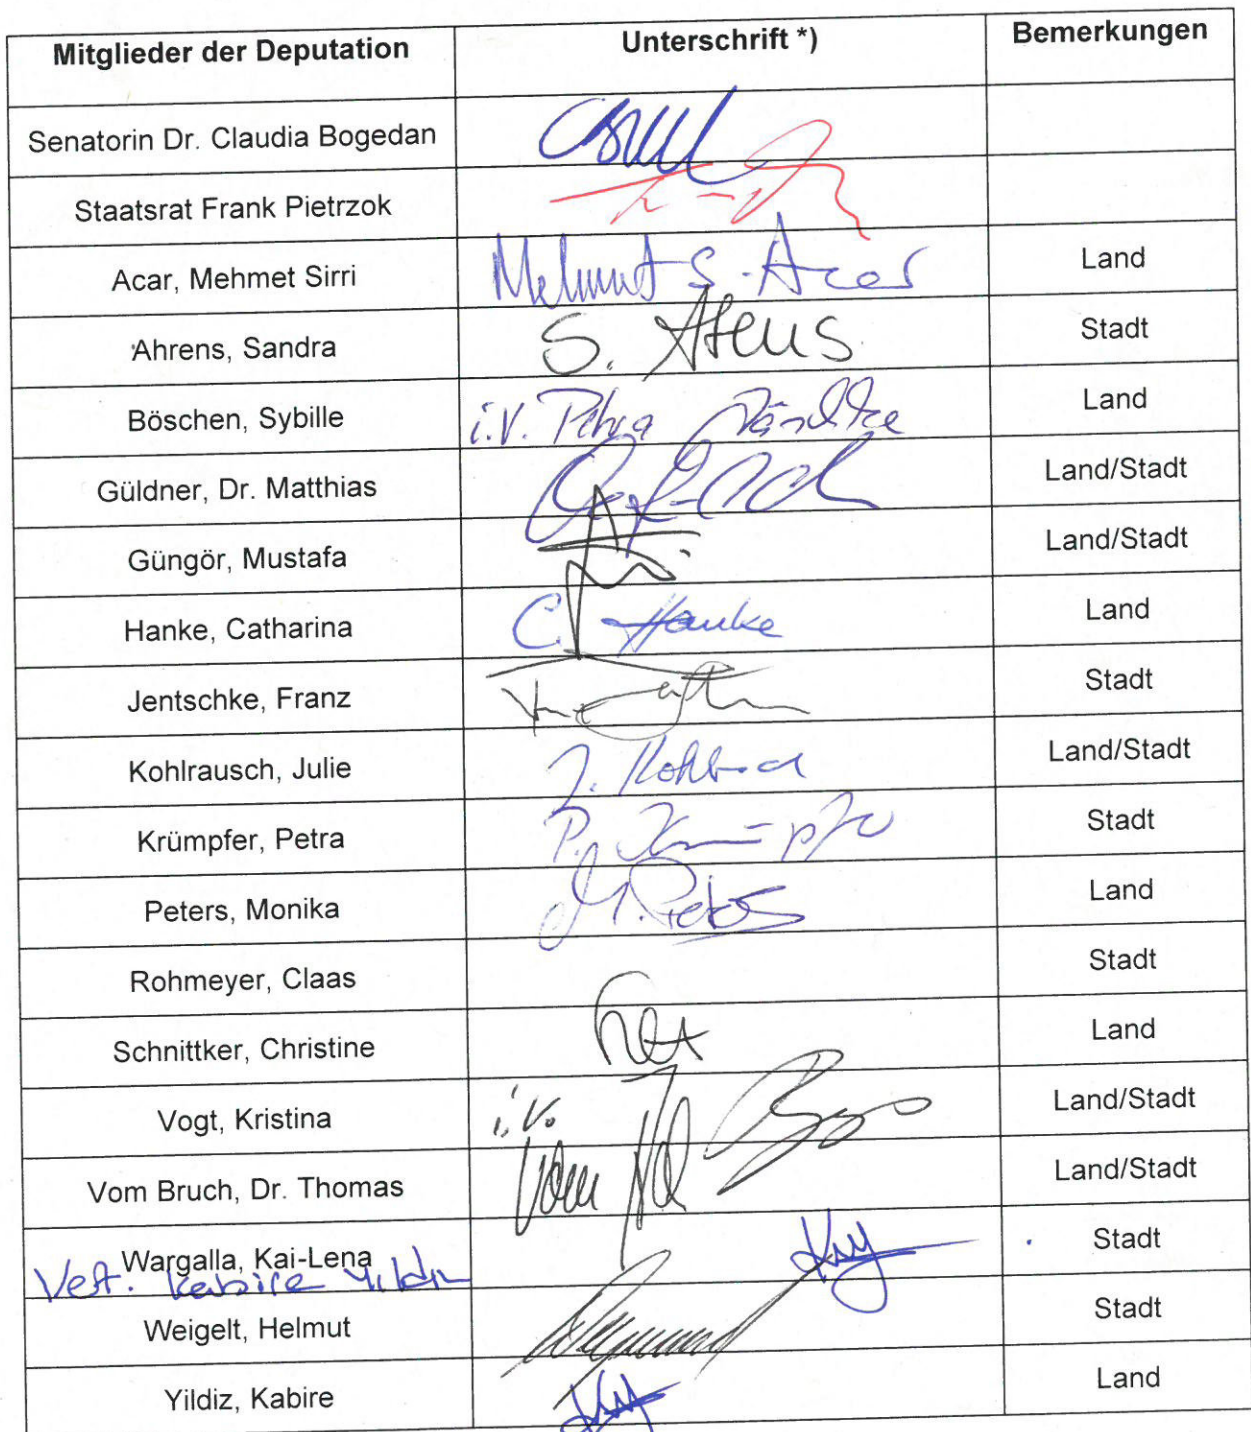 Mitglieder der Deputation Unterschrift *) Bemerkungen
Senatorin Dr. Claudia Bogedan
Staatsrat Frank Pietrzok
Acar, Mehmet Sirri Mehmet S. Acar Land
Ahrens, Sandra S. Ahrens Stadt
Böschen, Sybille i.V. Petra Jäschke Land
Güldner, Dr. Matthias Land/Stadt
Güngör, Mustafa Land/Stadt
Hanke, Catharina C. Hanke Land
Jentschke, Franz Stadt
Kohlrausch, Julie J. Land/Stadt
Krümpfer, Petra P. Krümpfer Stadt
Peters, Monika M. Peters Land
Rohmeyer, Claas Stadt
Schnittker, Christine Land
Vogt, Kristina i.V. Land/Stadt
Vom Bruch, Dr. Thomas vom Land/Stadt
Wargalla, Kai-Lena Stadt
Vert. Kabire Yildiz
Weigelt, Helmut Stadt
Yildiz, Kabire Land